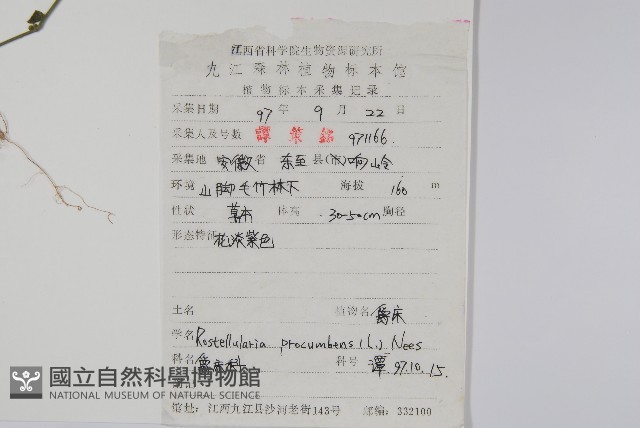 江西省科学院生物资源研究所
九江森林植物标本馆
植物标本采集记录
采集日期 97 年 9 月 22 日
采集人及号数 譚策銘 971166.
采集地 安徽 省 东至 县(市) 响岭
环境 山脚毛竹林下 海拔 160 m
性状 草本 体高 30-50cm 胸径
形态特征 花淡紫色
土名 植物名 爵床
学名 Rostellularia procumbens (L.) Nees
科名 爵床科 科号 譚 97.10.15.
國立自然科學博物館
NATIONAL MUSEUM OF NATURAL SCIENCE
馆址:江西九江县沙河老街143号 邮编:332100